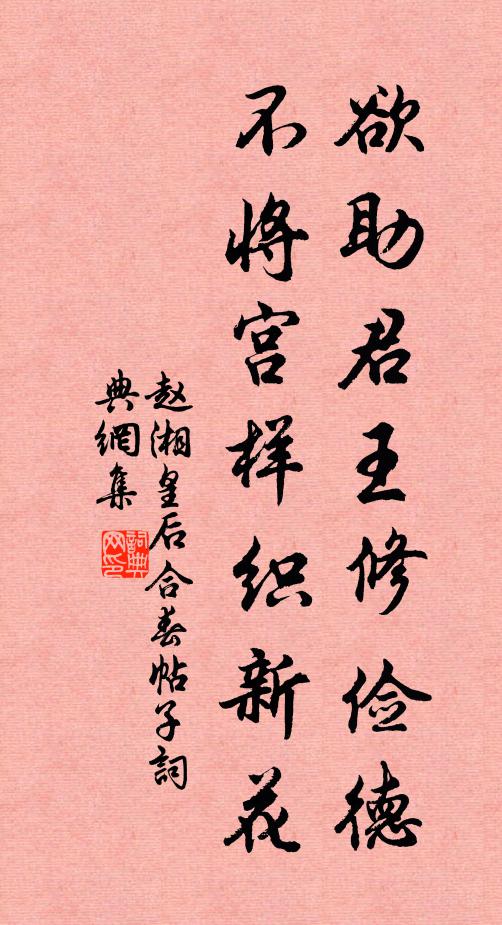 欲助君王修俭德
不将宫样织新花
赵湘皇后合春帖子詞
典網集
詞典网印